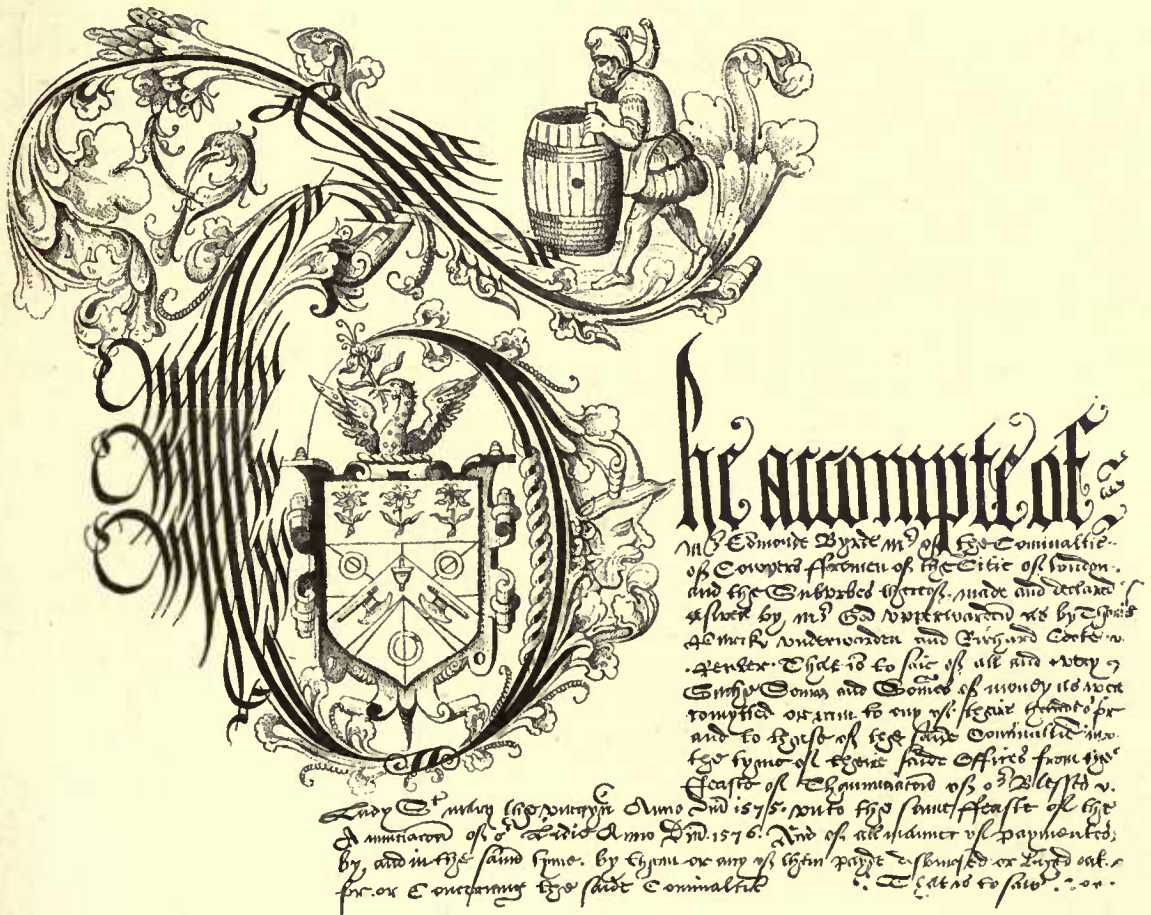 The accompte of
Mr Edmonde Byrde Mr of the Cominaltie
of Cowpers ffremen of the Citie of London
and the Suburbes thereof. made and declared
aswell by Mr God upperwarden as by Thom's
underwarden and Richard
That is to saie of all and every
Suche Somes and Somes of money as were
comytted or cam to any of their handes
and to thuse of the saide Cominaltie
the tyme of theire saide Offices from the
ffeaste of Thannunciacon of or Blessed
Lady St mary the virgyn Anno Dni 1575. unto the same ffeaste of the
Annunciacon of or Ladie Anno Dni. 1576. And of all manner of paymentes
by, and in the same tyme. by them or any of them payde disbursed or layed out
for, or Concerning the saide Cominaltie That is to saie